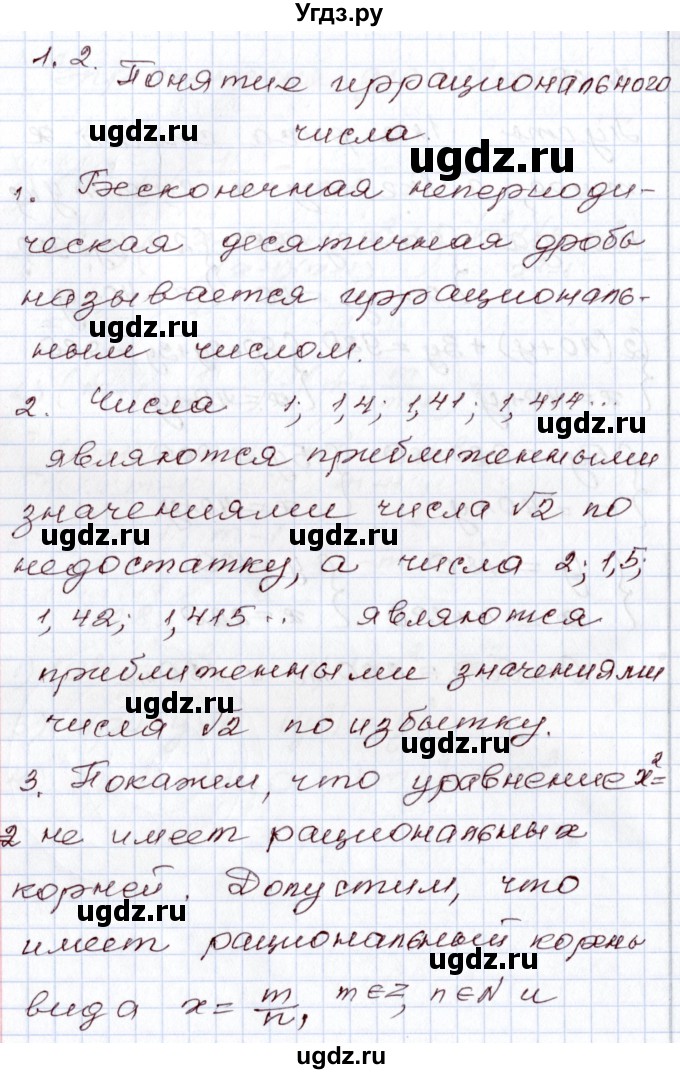 Угдз.ру
1.2. Понятие иррационального
числа.
1. Бесконечная непериоди-
ческая десятичная дробь
называется иррациональ-
ным числом.
2. Числа 1; 1,4; 1,41; 1,414...
являются приближенными
значениями числа √2 по
недостатку, а числа 2; 1,5;
1,42; 1,415... являются
приближенными значениями
числа √2 по избытку.
3. Покажем, что уравнение x²=
2 не имеет рациональных
корней. Допустим, что
имеет рациональный корень
вида x = m/n, m∈Z, n∈N и
ugdz.ru
ugdz.ru
ugdz.ru
ugdz.ru
ugdz.ru
ugdz.ru
ugdz.ru
ugdz.ru
ugdz.ru
ugdz.ru
ugdz.ru
ugdz.ru
ugdz.ru